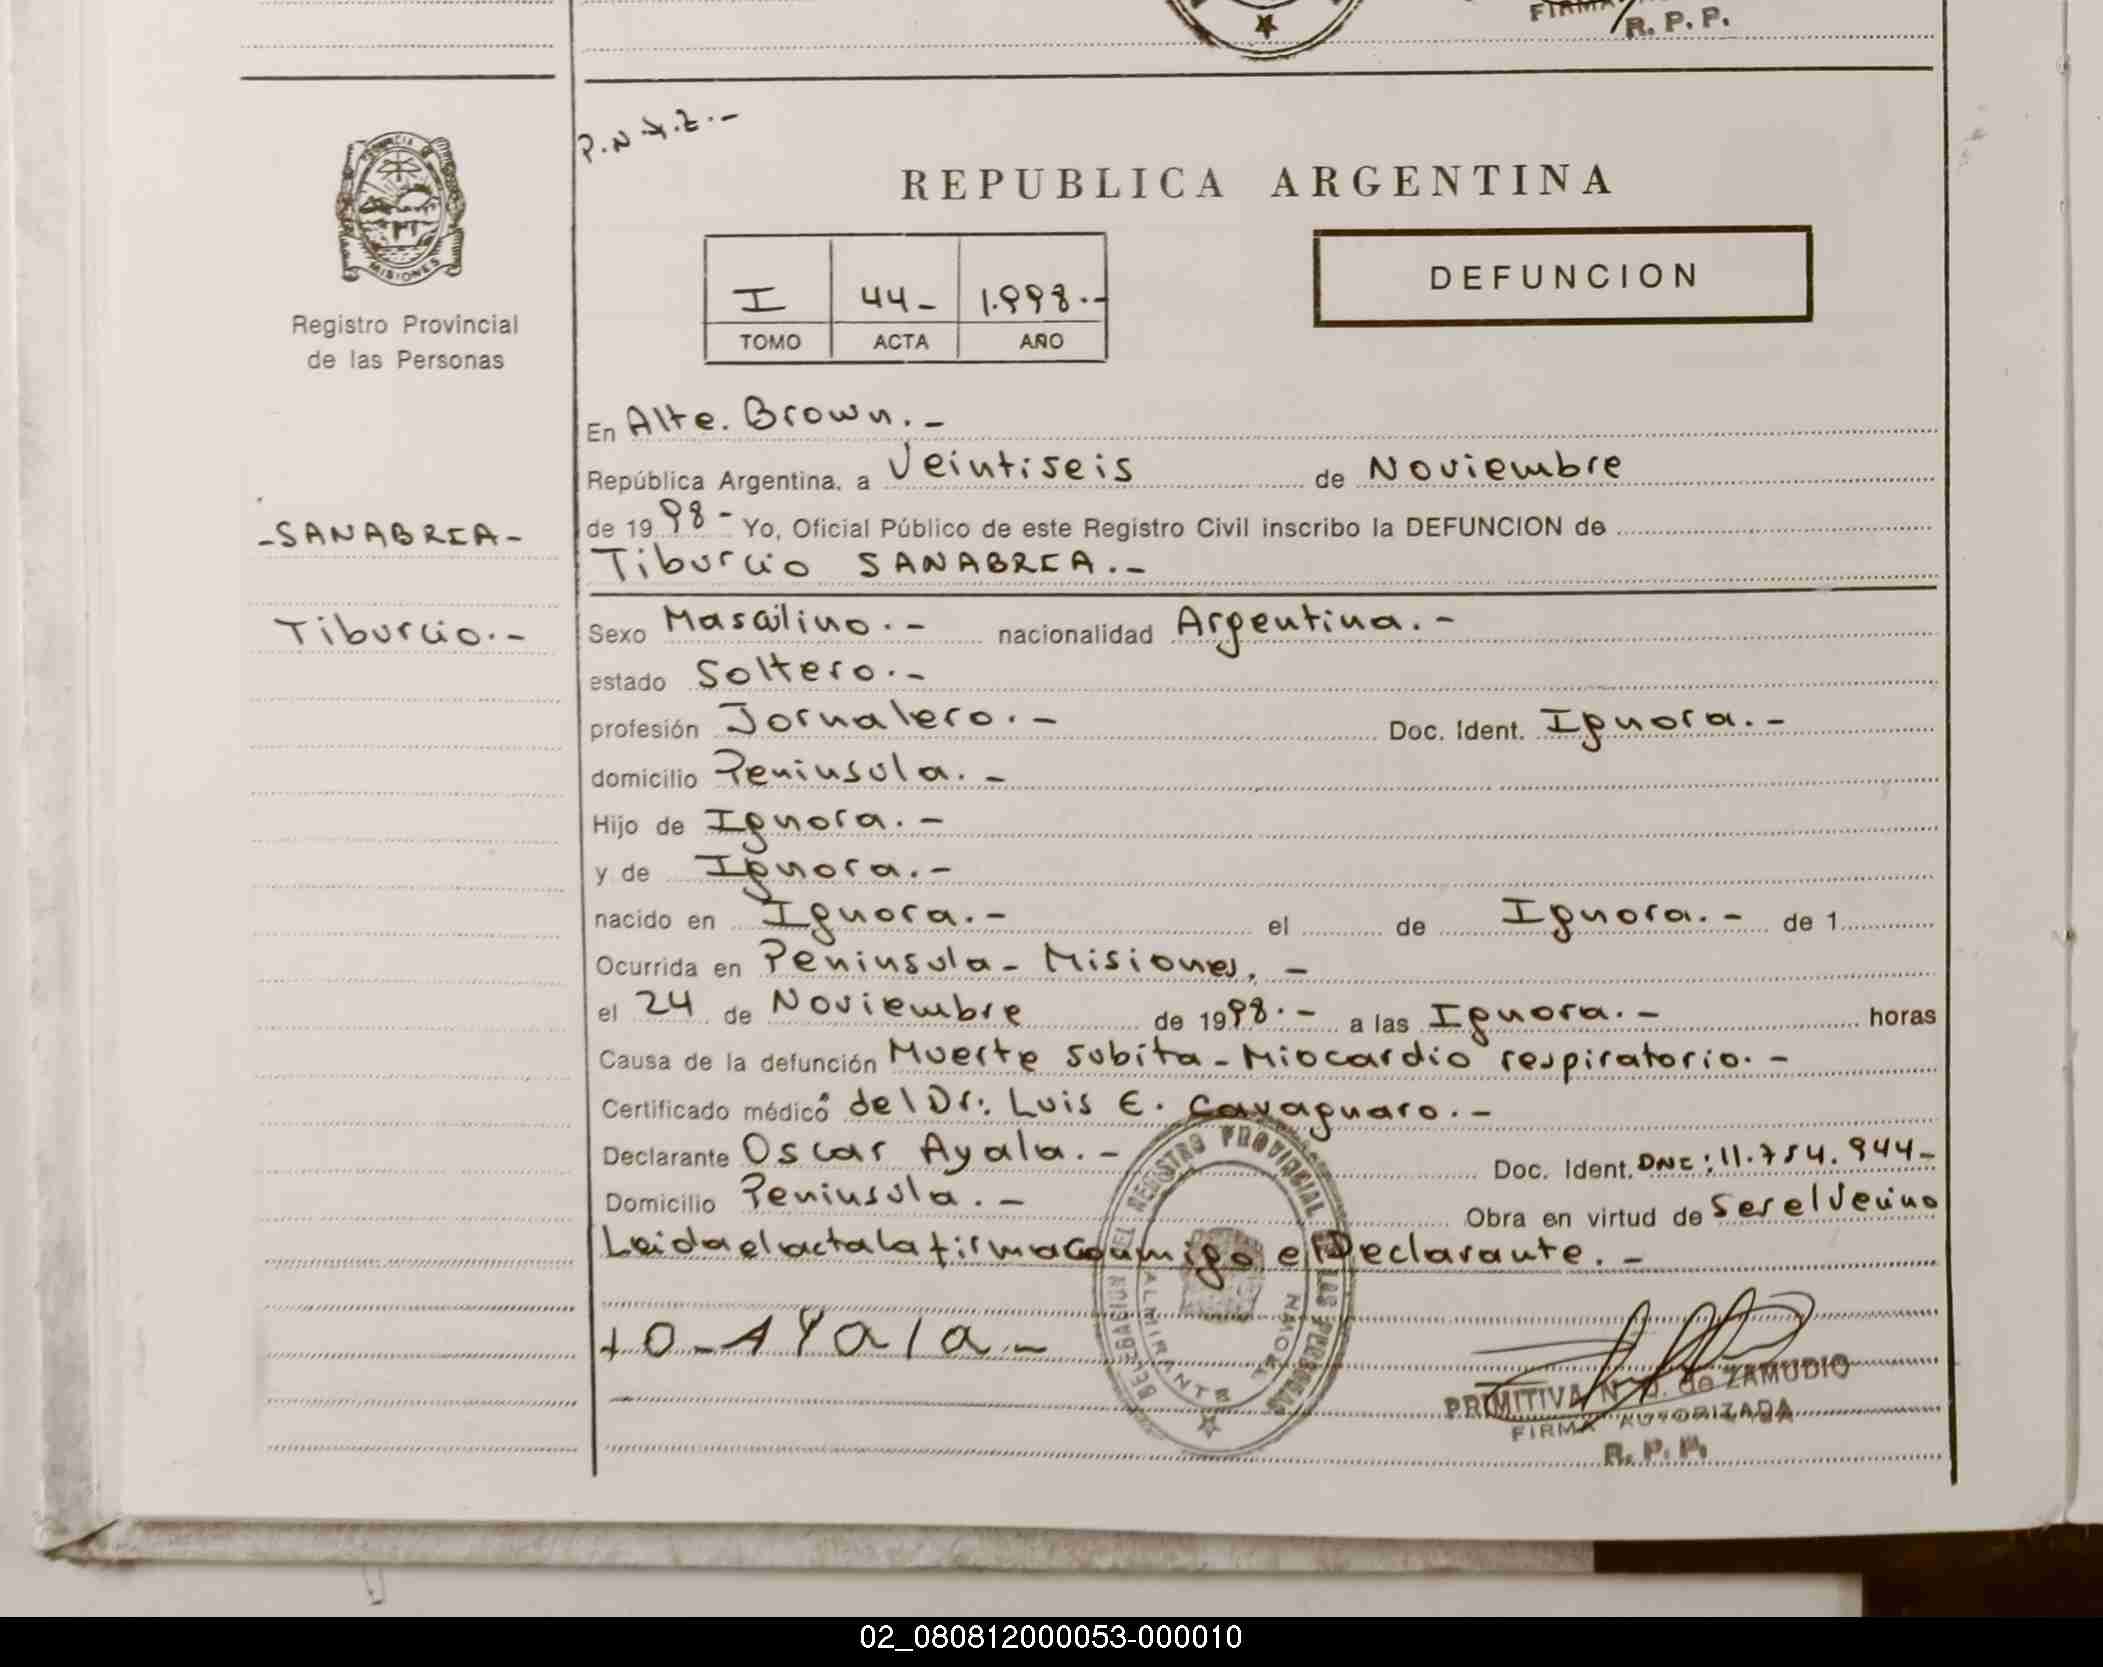 FIRMA
R. P. P.
P.N.Z.Z.-
REPUBLICA ARGENTINA
PROVINCIA DE
MISIONES
DEFUNCION
I 44- 1.998.-
TOMO ACTA AÑO
Registro Provincial
de las Personas
En Alte. Brown.-
República Argentina, a Veintiseis de Noviembre
de 1998- Yo, Oficial Público de este Registro Civil inscribo la DEFUNCION de
-SANABRIA-
Tiburcio SANABRIA.-
Tiburcio.-
Sexo Masculino.- nacionalidad Argentina.-
estado Soltero.-
profesión Jornalero.- Doc. Ident. Ignora.-
domicilio Peninsula.-
Hijo de Ignora.-
y de Ignora.-
nacido en Ignora.- el de Ignora.- de 1
Ocurrida en Peninsula- Misiones,-
el 24 de Noviembre de 1998.- a las Ignora.- horas
Causa de la defunción Muerte subita-Miocardio respiratorio.-
Certificado médico del Dr: Luis E. Cavagnaro.-
Declarante Oscar Ayala.- Doc. Ident. DNI: 11.754.944-
Domicilio Peninsula.- Obra en virtud de Ser el Vecino
Leida el acta la firma conmigo el Declarante.-
REGISTRO PROVINCIAL DE LAS PERSONAS
ALMIRANTE BROWN
O-AYala-
PRIMITIVA N. D. de ZAMUDIO
FIRMA AUTORIZADA
R. P. P.
02_080812000053-000010